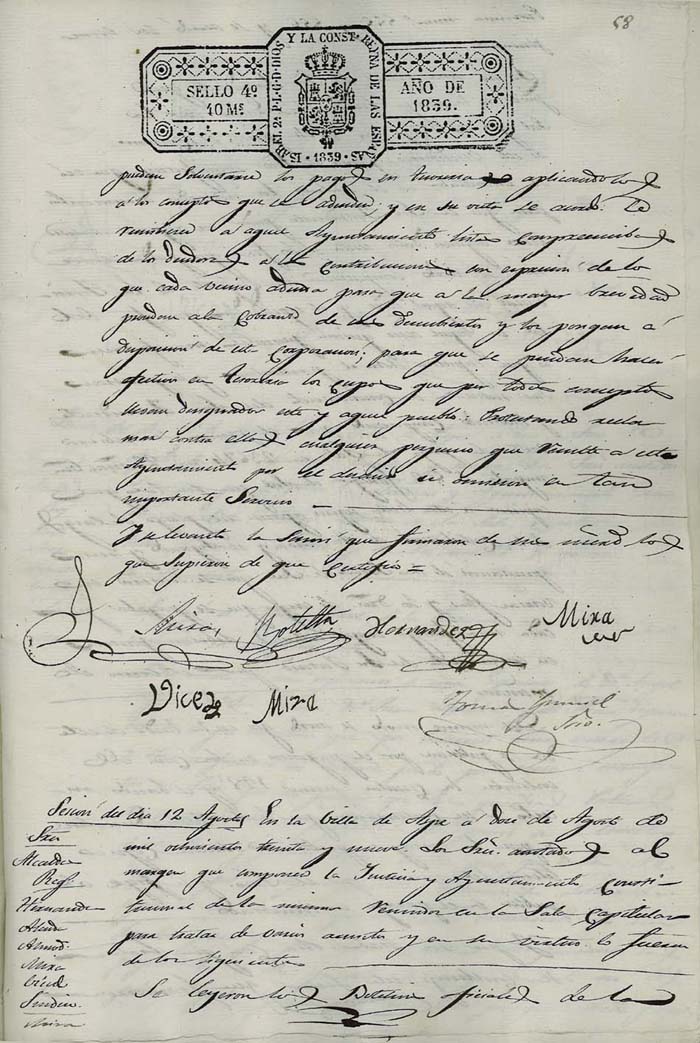 58
ISABEL 2ª P.L.G.D. DIOS Y LA CONST. REYNA DE LAS ESPAÑAS
SELLO 4º
40 Mˢ
AÑO DE
1839.
· 1839 ·
puedan solventarse los pagos en tesoreria aplicandolos
á los conceptos que se adeuden, y en su vista se acordó: Se
á aquel Ayuntamiento lista comprensiba
de los deudores á las contribuciones con expresion de lo
que cada vecino adeuda para que á la mayor brevedad
procedan á la cobranza de sus descubiertos y los pongan á
disposicion de esta corporacion; para que se puedan hacer
efectivos en tesoreria los cupos que por todos conceptos
llevan designados este y aquel pueblo: Protestando recla
mar contra ellos cualquier perjuicio que resulte á este
Ayuntamiento por el descuido ú omision en tan
importante Servicio
Y se levantó la Sesion que firmaron de sus mrds los
que supieron de que Certifico =
Botella
Hernandez
Mira
Vicedo
Mira
Srio.
Sesion del dia 12 Agosto
En la Villa de á doce de Agosto de
mil ochocientos treinta y nueve. Los Sres. anotados al
margen que componen la Justicia y Ayuntamiento Consti
tucional de la misma reunidos en la Sala Capitular
para tratar de varios asuntos y en su virtud lo fueron
de los siguientes
Se leyeron los Boletines oficiales de la
Sres
Alcalde
Regs.
Hernandez
Almod.
Mira
Vicedo
Sindico
Mira